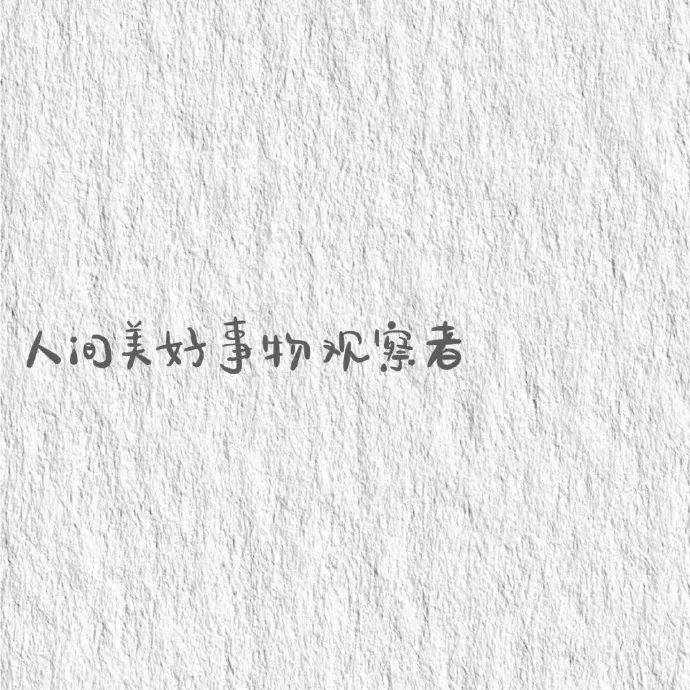 人间美好事物观察者